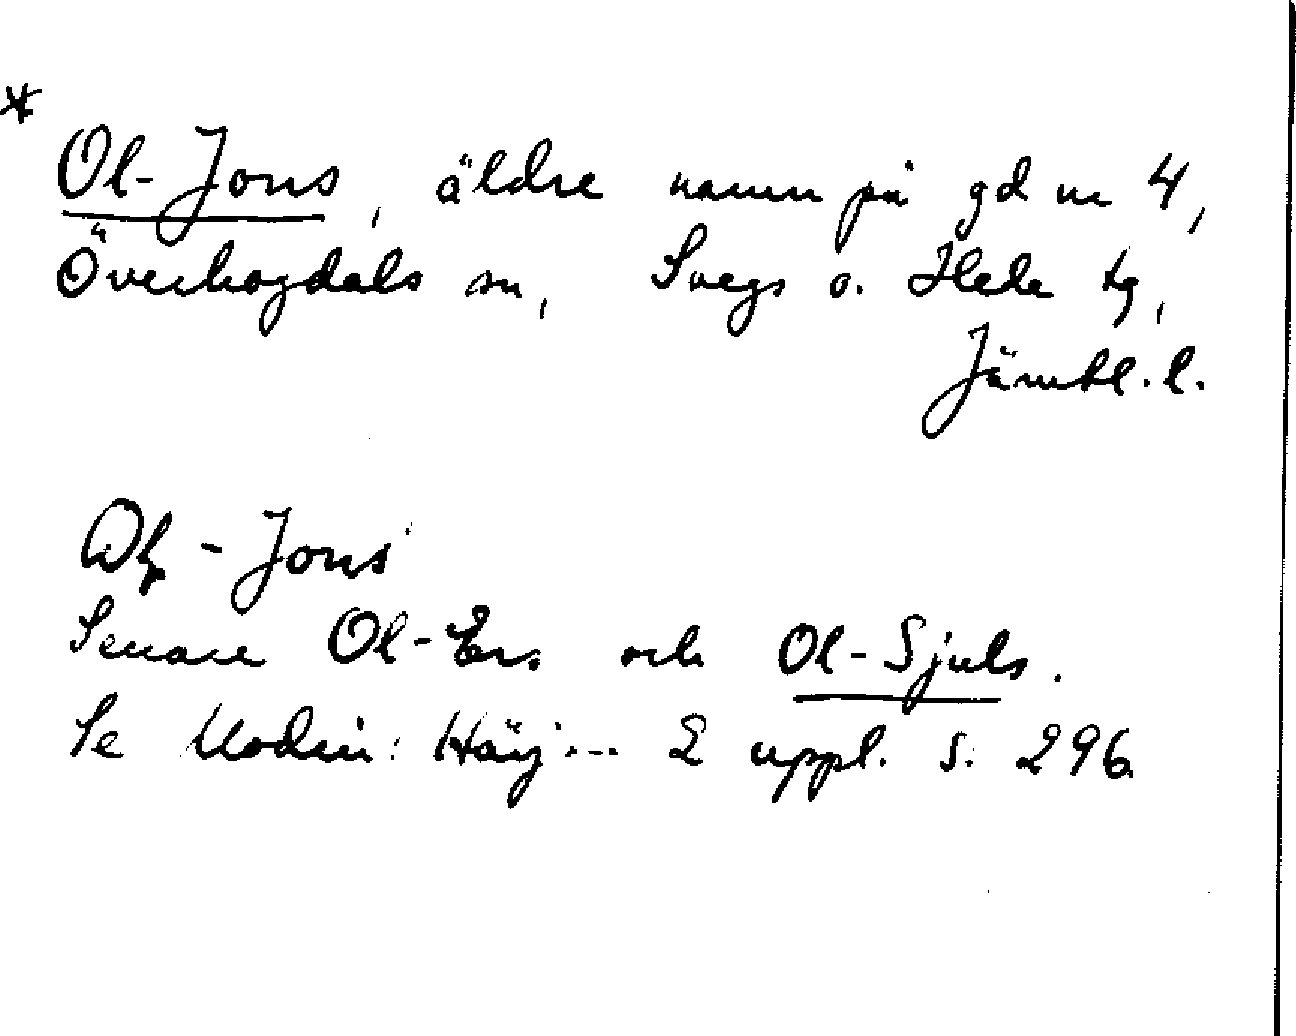 *
Ol-Jons, äldre namn på gd nr 4,
Överhogdals sn, Svegs o. Hede tg,
Jämtl. l.
-Jons
Senare Ol-Ers och Ol-Sjuls.
Se Modin: Härj... 2 uppl. s. 296.